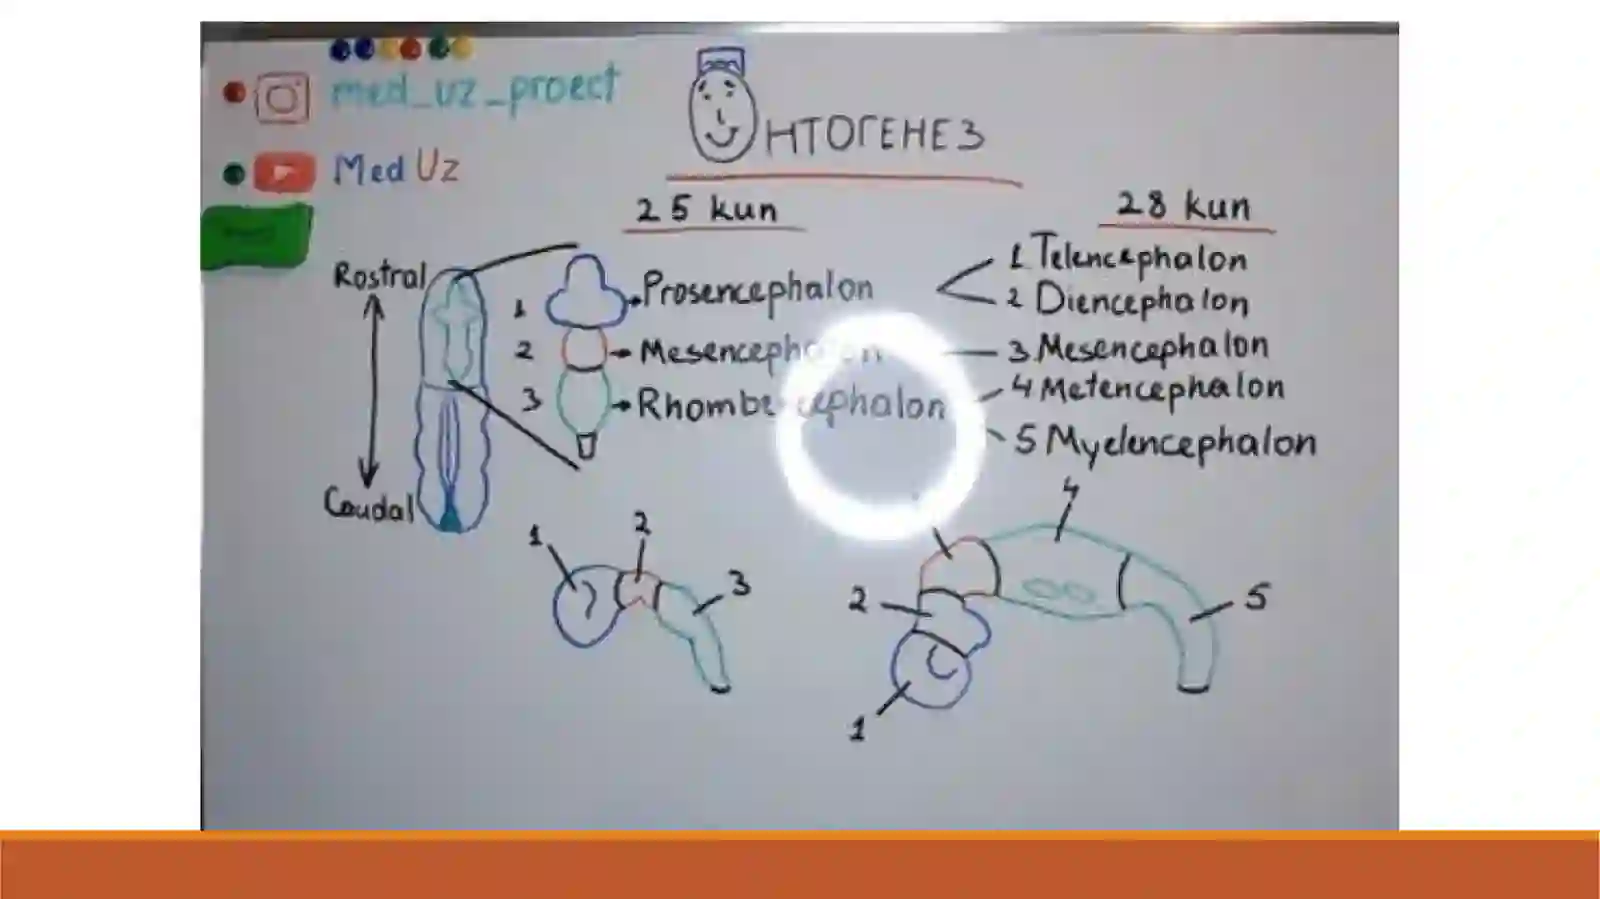 med_uz_proect
Med Uz
ОНТОГЕНЕЗ
25 kun
28 kun
Rostral
Caudal
1
2
3
Prosencephalon
Mesencephalon
Rhombencephalon
1 Telencephalon
2 Diencephalon
3 Mesencephalon
4 Metencephalon
5 Myelencephalon
1
2
3
4
2
5
1